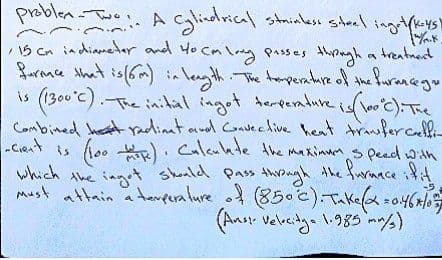 Problem-Two:. A Cylindrical stainless steel ingot (k=45 W/m.K
, 15 cm in diameter and 40 cm long passes through a treatment
furnace that is (6m) in length. The temperature of the furnace gas
is (1300°C). The initial ingot temperature is (100°C). The
Combined heat radiant and Convective heat transfer coeffi-
-cient is (100 W/m²K). Calculate the maximum speed with
which the ingot should pass through the furnace if it
must attain a temperature of (850°C). Take (α = 0.46×10⁻⁵ m²/s
(Ans:- Velocity = 1.985 mm/s)